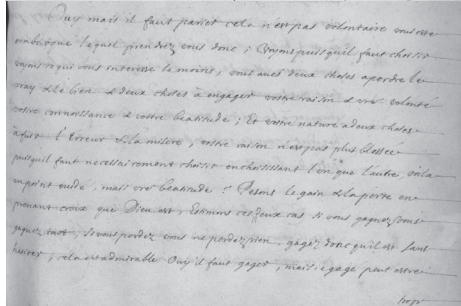 Ouy mais il faut parier cela n'est pas volontaire vous este
embarqué lequel prendrez vous donc; Voyons puisqu'il faut choisir
voyons ce qui vous interesse le moins, vous aves deux choses a perdre le
vray & le bien & deux choses à engager vostre raison & vre volonté
vostre connoissance & vostre beatitude; Et vostre nature a deux choses
à fuir l'Erreur & la misere, vostre raison n'est pas plus blessée
puisqu'il faut necessairement choisir en choisissant l'un que l'autre, voila
un point vuidé, mais vre beatitude? Pesons le gain & la perte en
prenant croix que Dieu est, Estimons ces deux cas si vous gagnez vous
gagnez tout, si vous perdez vous ne perdez rien, gagez donc qu'il est sans
hesiter, cela est admirable Ouy il faut gager, mais je gage peut estre
trop